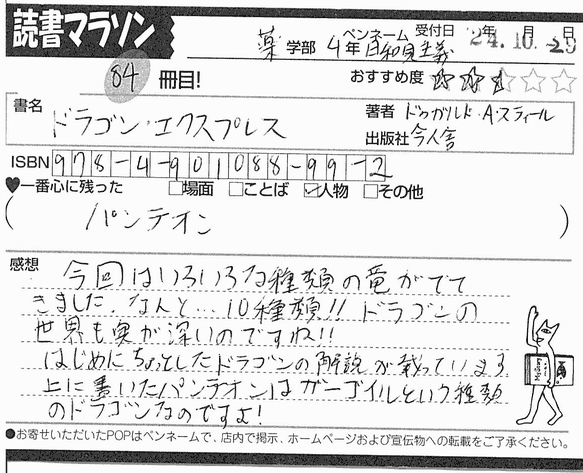 読書マラソン
薬 学部 4年 ペンネーム 日和見主義 受付日 年 月 日
24.10.-29
84 冊目!
おすすめ度 ★★★☆☆
書名 ドラゴン・エクスプレス
著者 ドゥガルド・A・スティール
出版社 今人舎
ISBN 978-4-901088-99-2
♥一番心に残った □場面 □ことば ☑人物 □その他
( パンテオン )
感想
今回はいろいろな種類の竜がでて
きました。なんと…10種類!!ドラゴンの
世界も奥が深いのですね!!
はじめにちょっとしたドラゴンの解説が載っています
上に書いたパンテオンはガーゴイルという種類
のドラゴンなのですよ!
●お寄せいただいたPOPはペンネームで、店内で掲示、ホームページおよび宣伝物への転載をご了承ください。